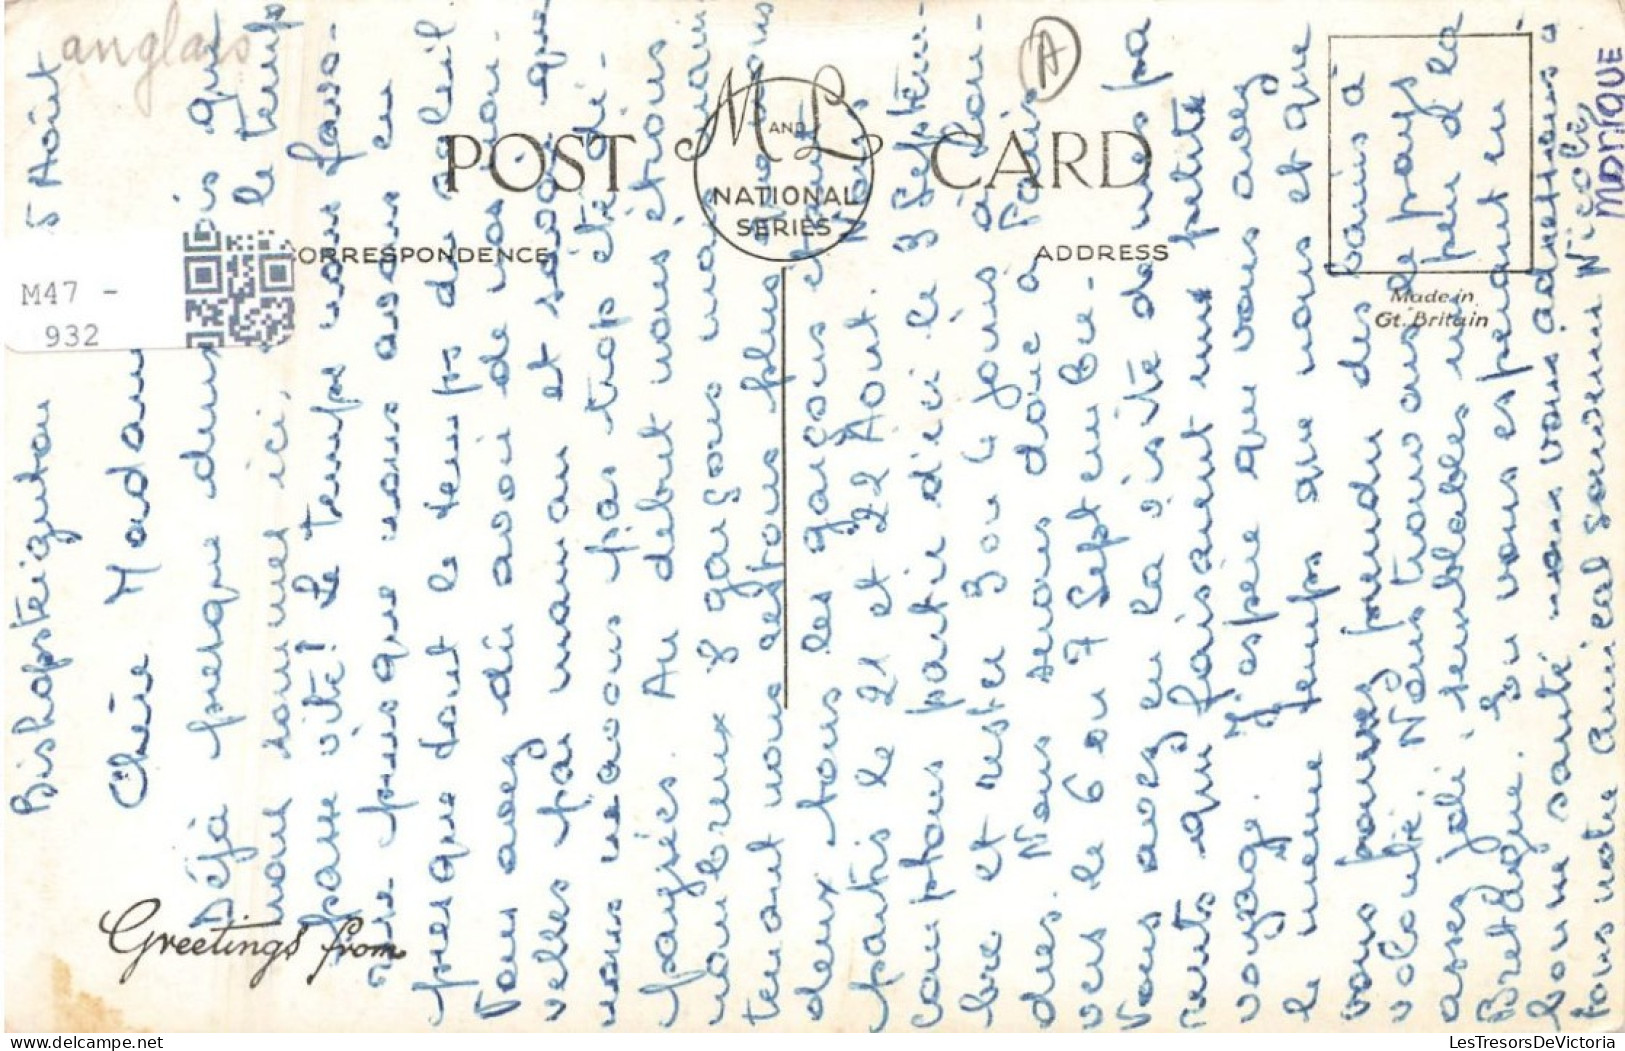 anglais
A
POST CARD
M AND L
NATIONAL
SERIES
CORRESPONDENCE
ADDRESS
Made in
Gt. Britain
M47 -
932
Greetings from
Bishopsteignton 5 Août
Chère Madame
Déjà presque deux mois que
nous sommes ici, le temps
passe vite! Le temps nous favo-
rise puisque nous avons eu
presque tout le temps du soleil
Vous avez dû avoir de nos nou-
velles par maman et savoir que
nous n'avons pas trop été dé-
paysées. Au début nous étions
nombreux 8 garçons mais main-
tenant nous restons plus que nous
deux tous les garçons étant
partis le 21 et 22 Août. Nous
comptons partir d'ici le 3 Septem-
bre et rester 3 ou 4 jours à Lon-
dres. Nous serons donc à Paris
vers le 6 ou 7 Septembre.
Vous avez eu la visite de mes pa
rents qui faisaient une petite
voyage. J'espère que vous avez
le même temps que nous et que
vous pouvez prendre des bains à
volonté. Nous trouvons le pays
assez joli, semblables un peu à la
Bretagne. En vous espérant en
bonne santé nous vous adressons à
tous notre amical souvenir Nicole
MONIQUE
LesTresorsDeVictoria.com